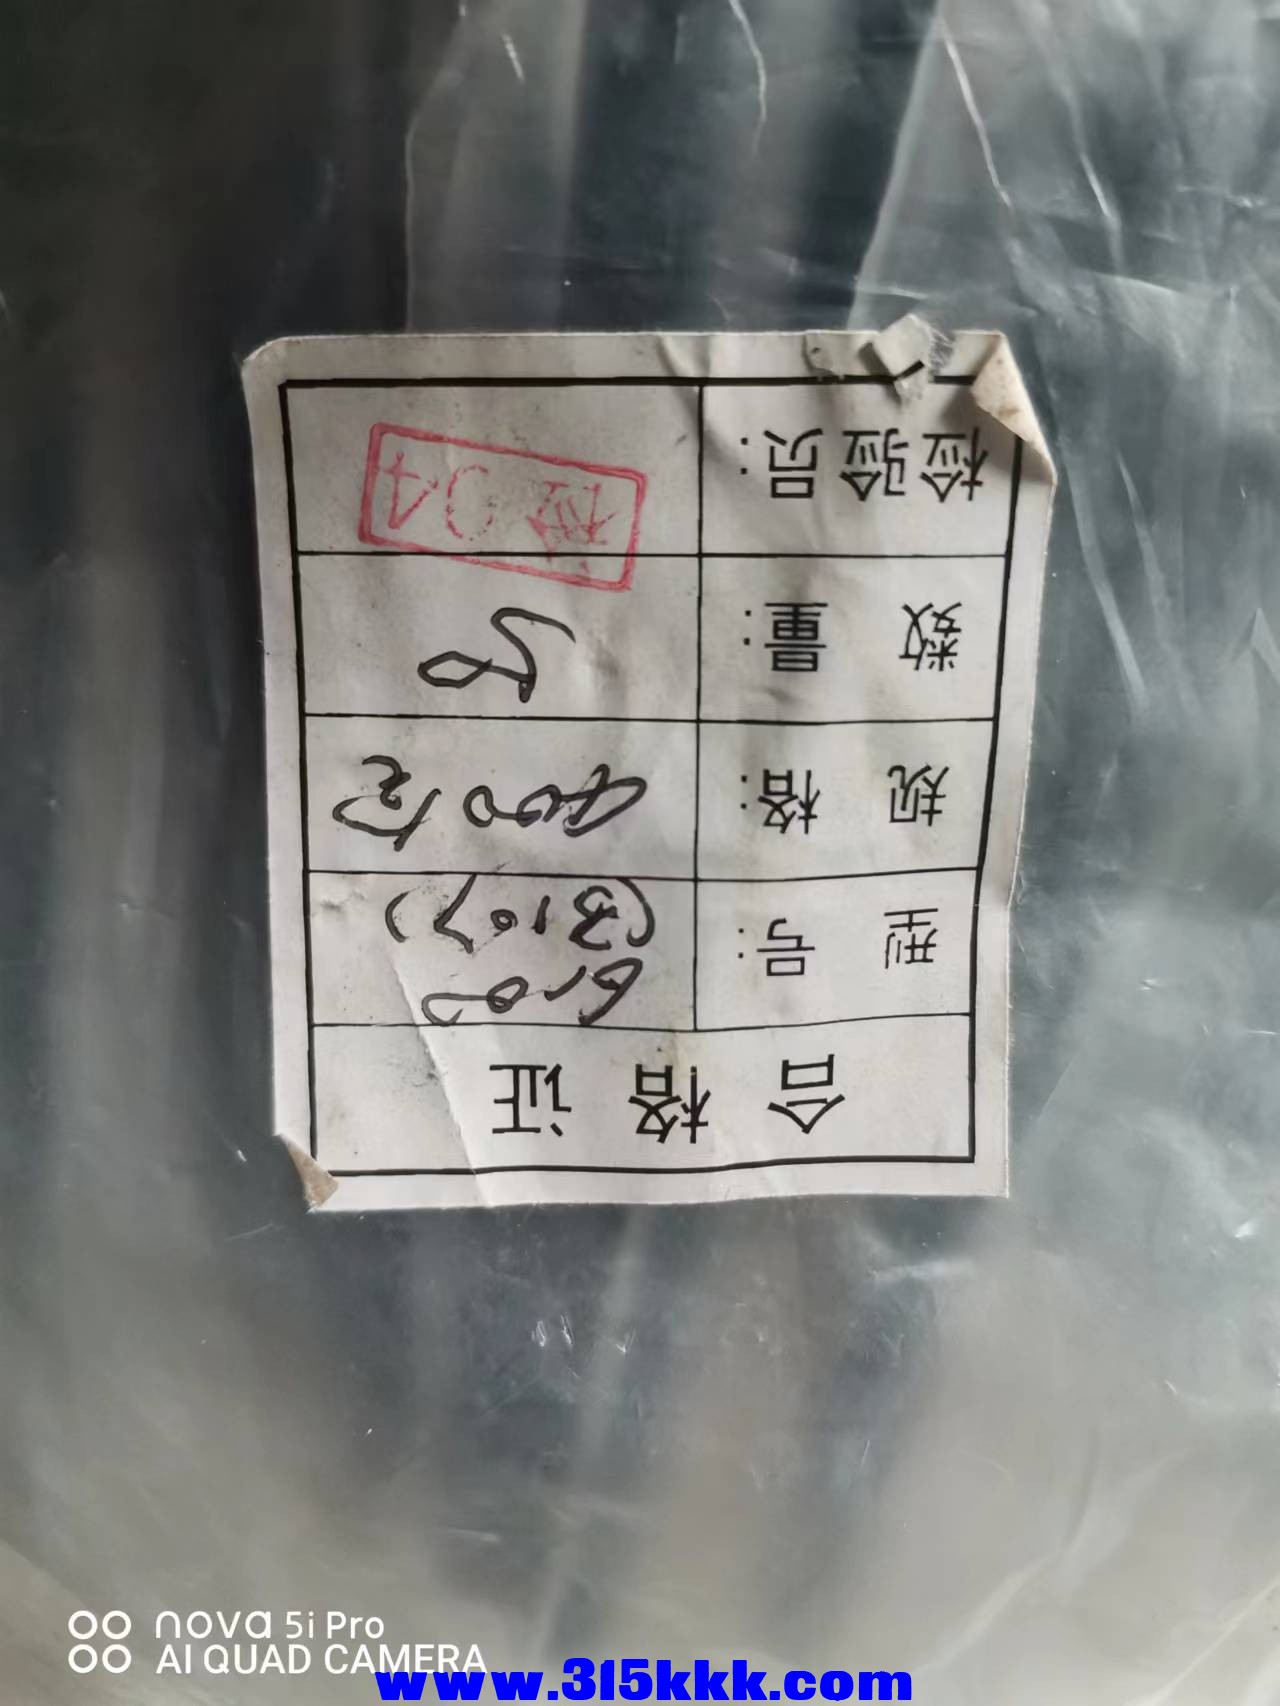 合格证
型号: 6100
(3107)
规格: 400
数量: 50
检验员: 检04
nova 5i Pro
AI QUAD CAMERA
www.315kkk.com